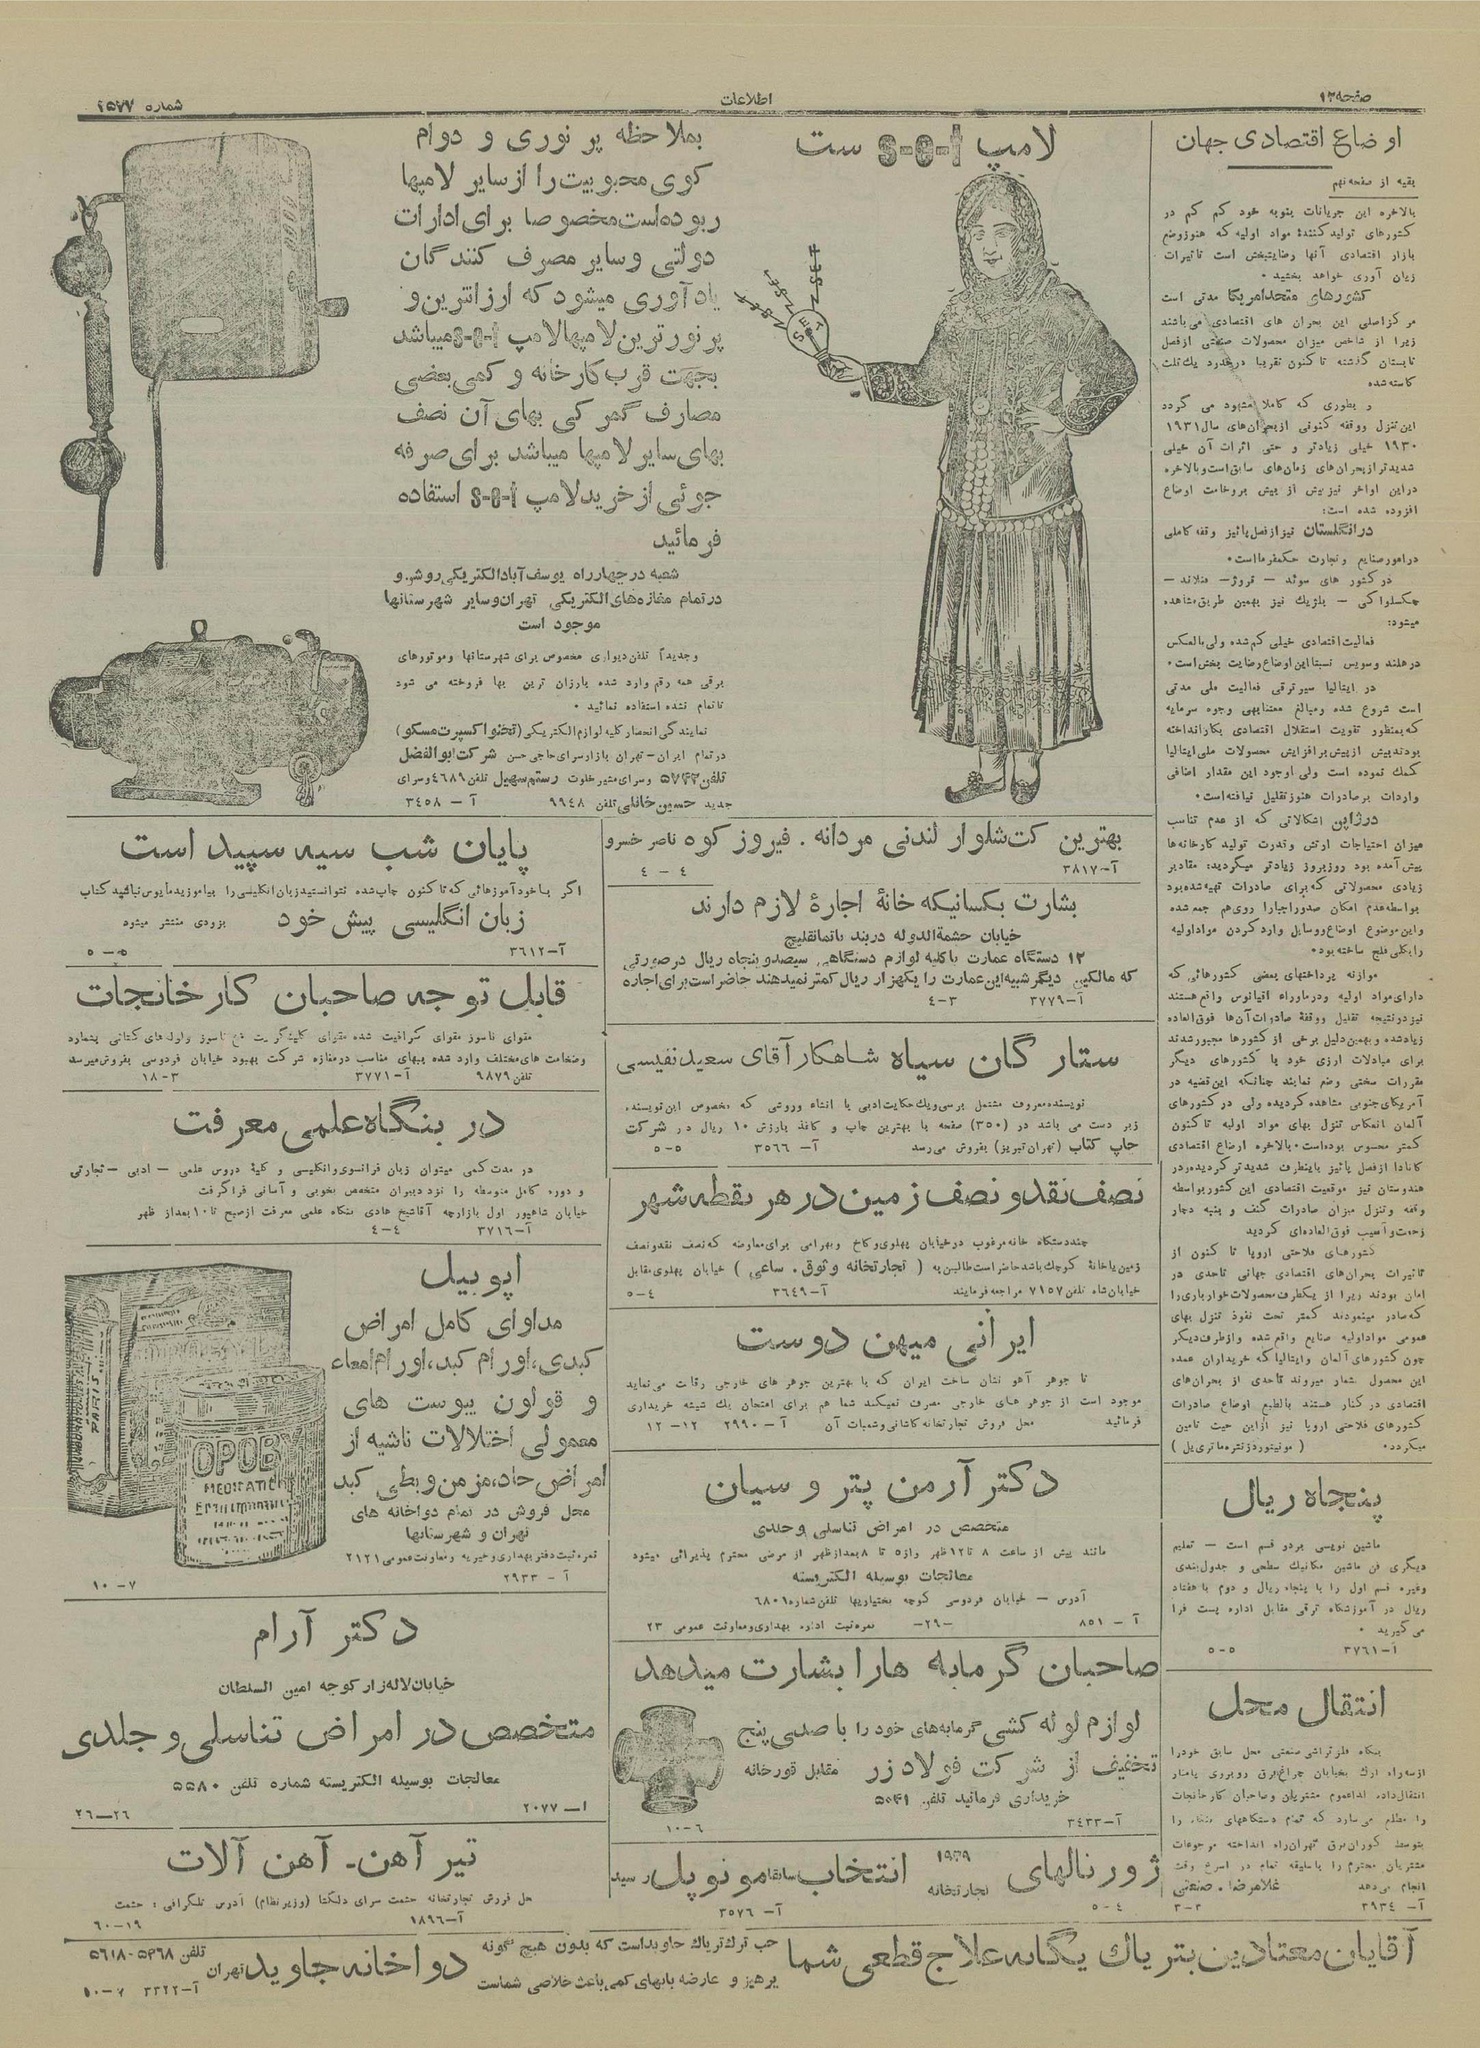 صفحه ۱۲
اطلاعات
شماره ۲۵۷۷
اوضاع اقتصادی جهان
بقیه از صفحه نهم
بالاخره این جریانات بنوبه خود کم کم در
کشورهای تولید کننده مواد اولیه که هنوز وضع
بازار اقتصادی آنها رضایتبخش است تاثیرات
زیان آوری خواهد بخشید •
کشورهای متحد امریکا مدتی است
مرکز اصلی این بحران های اقتصادی می باشند
زیرا از شاخص میزان محصولات صنعتی از فصل
تابستان گذشته تا کنون تقریبا در حدود یک ثلث
کاسته شده
و بطوری که کاملا مشهود می گردد
این تنزل و وقفه کنونی از بحران های سال ۱۹۳۱
۱۹۳۰ خیلی زیادتر و حتی اثرات آن خیلی
شدیدتر از بحران های زمان های سابق است و بالاخره
در این اواخر نیز بیش از پیش بر وخامت اوضاع
افزوده شده است:
در انگلستان نیز از فصل پائیز وقفه کاملی
در امور صنایع و تجارت حکمفرما است •
در کشور های سوئد – نروژ – فنلاند –
چکسلواکی – بلژیک نیز بهمین طریق مشاهده
میشود:
فعالیت اقتصادی خیلی کم شده ولی بالعکس
در هلند و سویس نسبتا این اوضاع رضایت بخش است •
در ایتالیا سیر ترقی فعالیت ملی مدتی
است شروع شده و مبالغ معتنابهی وجوه سرمایه
که بمنظور تقویت استقلال اقتصادی بکار انداخته
بودند بیش از پیش بر افزایش محصولات ملی ایتالیا
کمک نموده است ولی با وجود این مقدار اضافی
واردات بر صادرات هنوز تقلیل نیافته است •
در ژاپن اشکالاتی که از عدم تناسب
میزان احتیاجات ارتش و قدرت تولید کارخانه‌ها
پیش آمده بود روز بروز زیادتر میگردید: مقادیر
زیادی محصولاتی که برای صادرات تهیه شده بود
بواسطه عدم امکان صدور اجبارا روی هم جمع شده
و این موضوع اوضاع و وسایل وارد کردن مواد اولیه
را بکلی فلج ساخته بود •
موازنه پرداختهای بعضی کشورهائی که
دارای مواد اولیه و در ماوراء اقیانوس واقع هستند
نیز در نتیجه تقلیل و وقفه صادرات آن‌ها فوق العاده
زیاد شده و بهمین دلیل برخی از کشورها مجبور شدند
برای مبادلات ارزی خود با کشورهای دیگر
مقررات سختی وضع نمایند چنانکه این قضیه در
آمریکای جنوبی مشاهده گردیده ولی در کشورهای
آلمان انعکاس تنزل بهای مواد اولیه تا کنون
کمتر محسوس بوده است • بالاخره اوضاع اقتصادی
کانادا از فصل پائیز باینطرف شدید تر گردیده و در
هندوستان نیز موقعیت اقتصادی این کشور بواسطه
وقفه و تنزل میزان صادرات کنف و پنبه دچار
زحمت و آسیب فوق العاده‌ای گردید
کشورهای فلاحتی اروپا تا کنون از
تاثیرات بحران‌های اقتصادی جهانی تا حدی در
امان بودند زیرا از یکطرف محصولات خوارباری را
که صادر مینمودند کمتر تحت نفوذ تنزل بهای
عمومی مواد اولیه صنایع واقع شده و از طرف دیگر
چون کشورهای آلمان و ایتالیا که خریداران عمده
این محصول بشمار میروند تا حدی از بحران‌های
اقتصادی در کنار هستند بالطبع اوضاع صادرات
کشورهای فلاحتی اروپا نیز از این حیث تامین
میگردد •
پنجاه ریال
ماشین نویسی بر دو قسم است – تعلیم
دیگری فن ماشین مکانیک سطحی و جدول بندی
وغیره قسم اول را با پنجاه ریال و دوم با هفتاد
ریال در آموزشگاه ترقی مقابل اداره پست فرا
می گیرید •
آ–۳۷۶۱ ۵-۵
انتقال محل
بنگاه فلز تراشی صنعتی محل سابق خود را
از سه راه ارک بخیابان چراغ برق روبروی پامنار
انتقال داد، لذا عموم مشتریان و صاحبان کارخانجات
را مطلع می‌دارد که تمام دستگاههای را
بتوسط کوران برق تهران راه انداخته مرجوعات
مشتریان محترم را با سلیقه تمام در اسرع وقت
انجام می دهد غلامرضا . صنعتی
آ– ۳۹۳۴ ۳-۲
لامپ s-e-t ست
SET
بملاحظه پر نوری و دوام
گوی محبوبیت را از سایر لامپها
ربوده است مخصوصا برای ادارات
دولتی و سایر مصرف کنندگان
یادآوری میشود که ارزانترین و
پر نور ترین لامپها لامپ s-e-t میباشد
بجهت قرب کارخانه و کمی بعضی
مصارف گمرکی بهای آن نصف
بهای سایر لامپها میباشد برای صرفه
جوئی از خرید لامپ s-e-t استفاده
فرمائید
شعبه در چهارراه یوسف آباد الکتریکی روشن و
در تمام مغازه‌های الکتریکی تهران و سایر شهرستانها
موجود است
وجدیداً تلفن دیواری مخصوص برای شهرستانها و موتورهای
برقی همه رقم وارد شده بارزان ترین بها فروخته می شود
تا تمام نشده استفاده نمائید •
نمایندگی انحصار کلیه لوازم الکتریکی (تخنو اکسپرت مسکو)
در تمام ایران – تهران بازار سرای حاجی حسن شرکت ابوالفضل
تلفن ۵۷۴۲ و سرای مشیر خلوت رستم سهیل تلفن ۴۶۸۹ و سرای
جدید حسین خانلی تلفن ۹۹۴۸ آ– ۳۴۵۸
بهترین کت شلوار لندنی مردانه . فیروز کوه ناصر خسرو
آ–۳۸۱۷ ۴–۴
بشارت بکسانیکه خانهٔ اجارهٔ لازم دارند
خیابان حشمة الدوله دربند باتمانقلیچ
۱۲ دستگاه عمارت با کلیه لوازم دستگاهی سیصد و پنجاه ریال در صورتی
که مالکین دیگر شبیه این عمارت را یکهزار ریال کمتر نمیدهند حاضر است برای اجاره
آ–۳۷۷۹ ۴-۳
ستارگان سیاه شاهکار آقای سعید نفیسی
نویسنده معروف مشتمل بر سی و یک حکایت ادبی با انشاء و روشی که مخصوص این نویسنده
زبر دست می باشد در (۳۵۰) صفحه با بهترین چاپ و کاغذ بارزش ۱۰ ریال در شرکت
چاپ کتاب (تهران تبریز) بفروش می رسد آ– ۳۵۶۶ ۵-۵
نصف نقد و نصف زمین در هر نقطه شهر
چند دستگاه خانه مرغوب در خیابان پهلوی و کاخ و بهرامی برای معاوضه که نصف نقد و نصف
زمین یا خانهٔ کوچک باشد حاضر است طالبین به ( تجارتخانه وثوق . ساعی ) خیابان پهلوی مقابل
خیابان شاه تلفن ۷۱۵۷ مراجعه فرمایند آ–۳۶۴۹ ۵-۴
ایرانی میهن دوست
تا جوهر آهو نشان ساخت ایران که با بهترین جوهر های خارجی رقابت می نماید
موجود است از جوهر های خارجی مصرف نمیکند شما هم برای امتحان یک شیشه خریداری
فرمائید محل فروش تجارتخانه کاشانی و شعبات آن آ– ۲۹۹۰ ۱۲–۱۲
دکتر آرمن پتر وسیان
متخصص در امراض تناسلی و جلدی
مانند پیش از ساعت ۸ تا ۱۲ ظهر و از ۵ تا ۸ بعد از ظهر از مرضی محترم پذیرائی میشود
معالجات بوسیله الکتریسته
آدرس – خیابان فردوسی کوچه بختیاریها تلفن شماره ۶۸۰۱
آ– ۸۵۱ –۲۹– نمره ثبت اداره بهداری و معاونت عمومی ۲۳
صاحبان گرمابه ها را بشارت میدهد
لوازم لوله کشی گرمابه‌های خود را با صدی پنج
تخفیف از شرکت فولاد زر مقابل قورخانه
خریداری فرمائید تلفن ۵۰۴۱
آ–۳۴۳۳ ۱۰-۶
ژورنالهای ۱۹۳۹ تجارتخانه انتخاب سابقا مونوپل رسید
۵-۴ آ– ۳۵۷۶
پایان شب سیه سپید است
اگر با خود آموزهائی که تا کنون چاپ شده نتوانستید زبان انگلیسی را بیاموزید مأیوس نباشید کتاب
زبان انگلیسی پیش خود بزودی منتشر میشود
آ–۳۶۱۲ ۵-۵
قابل توجه صاحبان کارخانجات
مقوای ناسوز مقوای گرافیت شده مقوای کلینگریت نخ ناسوز و لوله‌های کتانی بشماره
وضخامت های مختلف وارد شده ببهای مناسب در مغازه شرکت بهبود خیابان فردوسی بفروش میرسد
تلفن ۹۸۷۹ آ–۳۷۷۱ ۱۸-۳
در بنگاه علمی معرفت
در مدت کمی میتوان زبان فرانسوی و انگلیسی و کلیهٔ دروس علمی – ادبی – تجارتی
و دوره کامل متوسطه را نزد دبیران متخصص بخوبی و آسانی فرا گرفت
خیابان شاهپور اول بازارچه آقا شیخ هادی بنگاه علمی معرفت از صبح تا ۱۰ بعد از ظهر
آ–۳۷۱۶ ۴-۴
اپوبیل
مداوای کامل امراض
کبدی، اورام کبد، اورام امعاء
و قولون یبوست های
معمولی اختلالات ناشیه از
امراض حاد، مزمن و بطی کبد
محل فروش در تمام دواخانه های
تهران و شهرستانها
نمره ثبت دفتر بهداری و خیریه و معاونت عمومی ۲۱۲۱
آ – ۲۹۳۳ ۱۰-۷
OPOBY
MEDICATIC
PARIS
دکتر آرام
خیابان لاله زار کوچه امین السلطان
متخصص در امراض تناسلی و جلدی
معالجات بوسیله الکتریسته شماره تلفن ۵۵۸۰
ا— ۲۰۷۷ ۲۶–۲۶
تیر آهن- آهن آلات
حل فروش تجارتخانه حشمت سرای دلگشا (وزیر نظام) آدرس تلگرافی : حشمت
آ–۱۸۹۶ ۶۰–۱۹
آقایان معتادین بتریاک یگانه علاج قطعی شما
حب ترک تریاک جاوید است که بدون هیچ گونه
پرهیز و عارضه ببهای کمی باعث خلاصی شماست
دواخانه جاوید تهران
تلفن ۵۲۶۸–۵۶۱۸
آ–۳۳۲۲ ۱۰-۷